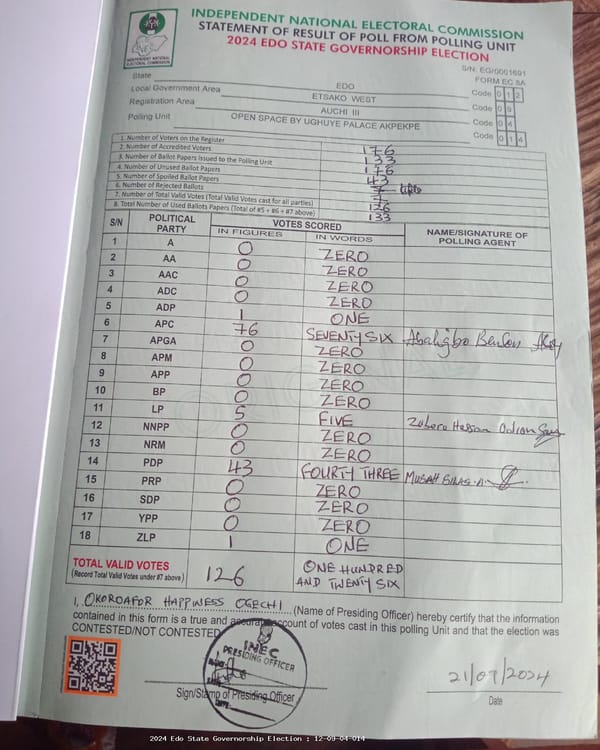 INDEPENDENT NATIONAL ELECTORAL COMMISSION
STATEMENT OF RESULT OF POLL FROM POLLING UNIT
2024 EDO STATE GOVERNORSHIP ELECTION
INDEPENDENT NATIONAL ELECTORAL COMMISSION
S/N: EG/0001691
FORM EC 8A
State EDO Code 0 1 2
Local Government Area ETSAKO WEST Code 0 9
Registration Area AUCHI III Code 0 4
Polling Unit OPEN SPACE BY UGHUYE PALACE AKPEKPE Code 0 1 4
1. Number of Voters on the Register 176
2. Number of Accredited Voters 133
3. Number of Ballot Papers Issued to the Polling Unit 176
4. Number of Unused Ballot Papers 43
5. Number of Spoiled Ballot Papers
6. Number of Rejected Ballots 7
7. Number of Total Valid Votes (Total Valid Votes cast for all parties) 126
8. Total Number of Used Ballots Papers (Total of #5 + #6 + #7 above) 133
S/N POLITICAL PARTY VOTES SCORED NAME/SIGNATURE OF POLLING AGENT
IN FIGURES IN WORDS
1 A 0 ZERO
2 AA 0 ZERO
3 AAC 0 ZERO
4 ADC 0 ZERO
5 ADP 1 ONE
6 APC 76 SEVENTY SIX
7 APGA 0 ZERO
8 APM 0 ZERO
9 APP 0 ZERO
10 BP 0 ZERO
11 LP 5 FIVE
12 NNPP 0 ZERO
13 NRM 0 ZERO
14 PDP 43 FOURTY THREE MUSAH
15 PRP 0 ZERO
16 SDP 0 ZERO
17 YPP 0 ZERO
18 ZLP 1 ONE
TOTAL VALID VOTES 126 ONE HUNDRED
(Record Total Valid Votes under #7 above) AND TWENTY SIX
I, OKOROAFOR HAPPINESS OGECHI (Name of Presiding Officer) hereby certify that the information
contained in this form is a true and accurate account of votes cast in this polling Unit and that the election was
CONTESTED/NOT CONTESTED
INEC
PRESIDING OFFICER
Sign/Stamp of Presiding Officer
21/09/2024
Date
2024 Edo State Governorship Election : 12-09-04-014